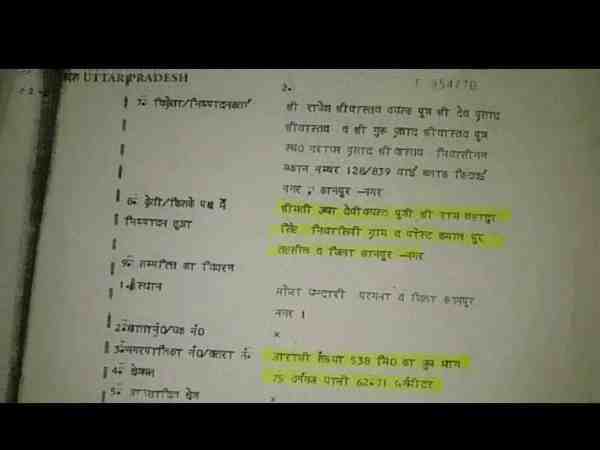 UTTAR PRADESH
2-
954770
7- विक्रेता/निष्पादनकर्ता
श्री राजेश श्रीवास्तव वयस्क पुत्र श्री देव प्रसाद
श्रीवास्तव व श्री गुरू प्रसाद श्रीवास्तव पुत्र
स्व0 प्रसाद श्रीवास्तव निवासीगण
मकान नम्बर 128/839 वाई ब्लाक किदवई
नगर, कानपुर -नगर
8- क्रेता/जिसके पक्ष में
निष्पादन हुआ
श्रीमती देवी वयस्क पुत्री श्री राम बहादुर
सिंह निवासिनी ग्राम व पोस्ट पुर
तहसील व जिला कानपुर -नगर
9- सम्पत्ति का विवरण
1- स्थान
मौजा परगना व जिला कानपुर
नगर ।
2- नं0
×
3- नगरपालिका नं0/खसरा नं0
आराजी संख्या 538 मि0 का जुज भाग
4- क्षेत्रफल
75 वर्गगज यानी 62.71 वर्गमीटर
5- आच्छादित क्षेत्र
×